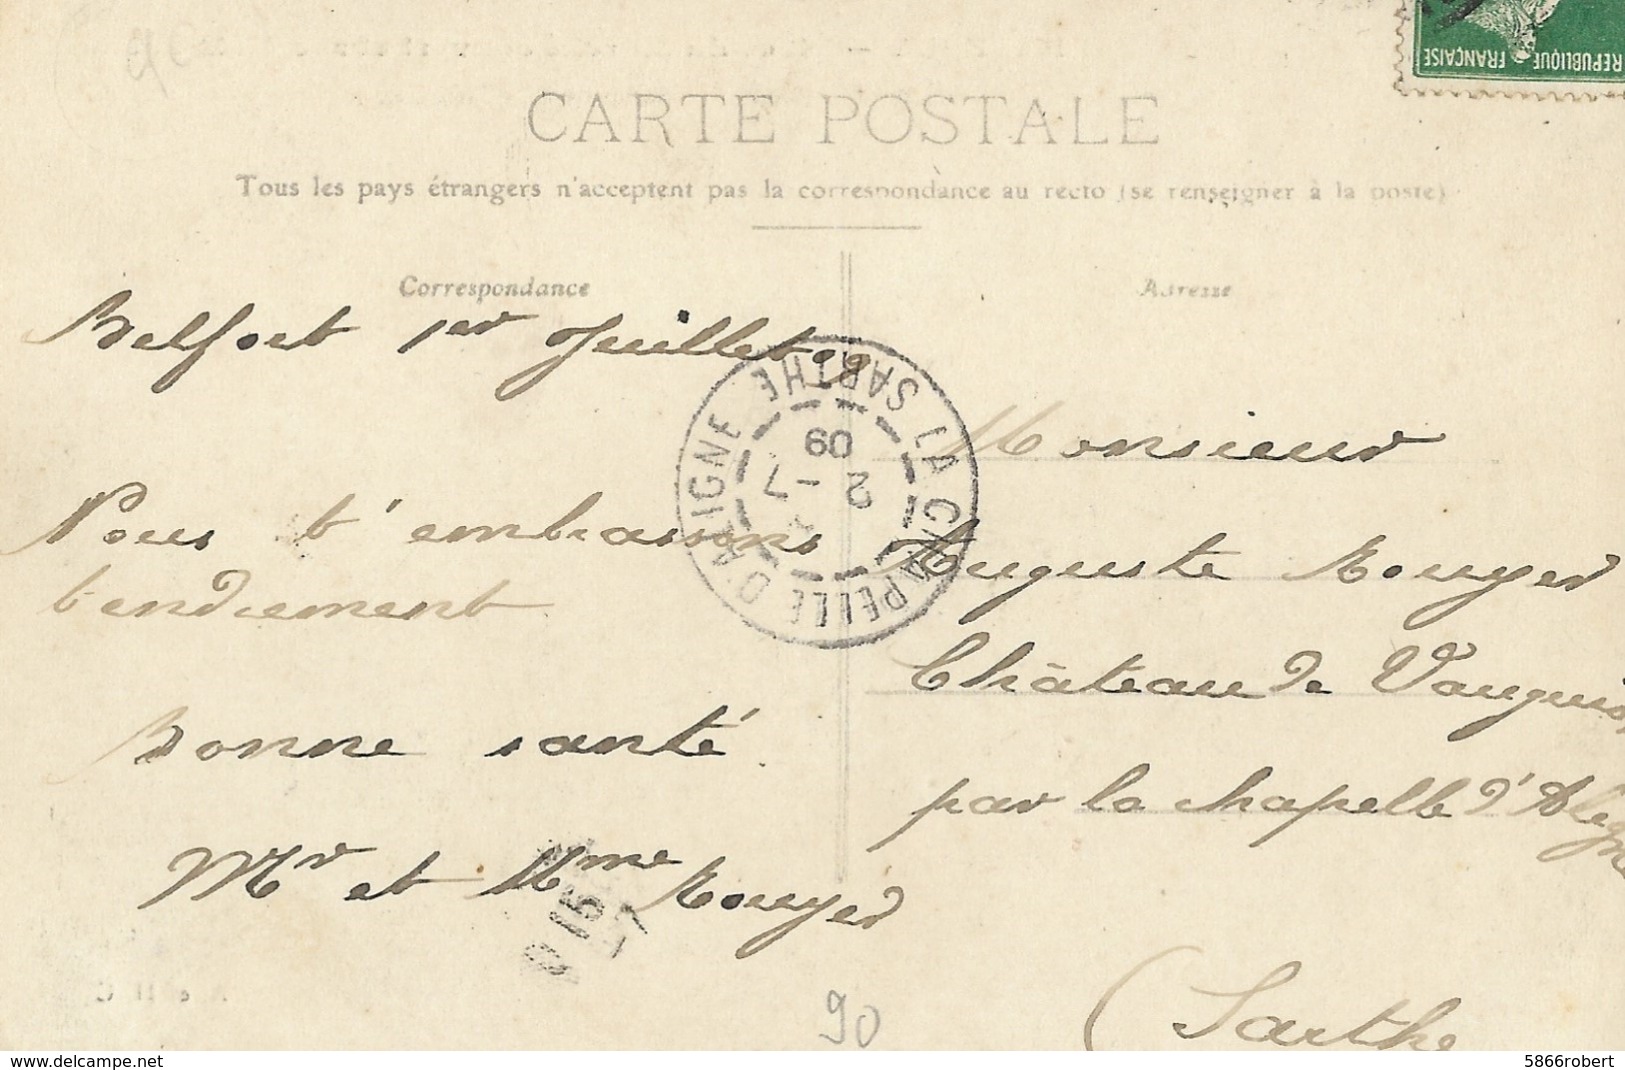 REPUBLIQUE FRANÇAISE
CARTE POSTALE
Tous les pays étrangers n'acceptent pas la correspondance au recto (se renseigner à la poste)
Correspondance
Belfort 1er Juillet 09
Nous t'embrassons
tendrement
Bonne santé
Mr et Mme Rouyer
Adresse
Monsieur
Auguste Rouyer
Château de Vauguis
par la chapelle d'Aligne
(Sarthe
LA CHAPELLE D'AIGNE SARTHE
2 - 7
09
15
-7
90
www.delcampe.net
5866robert